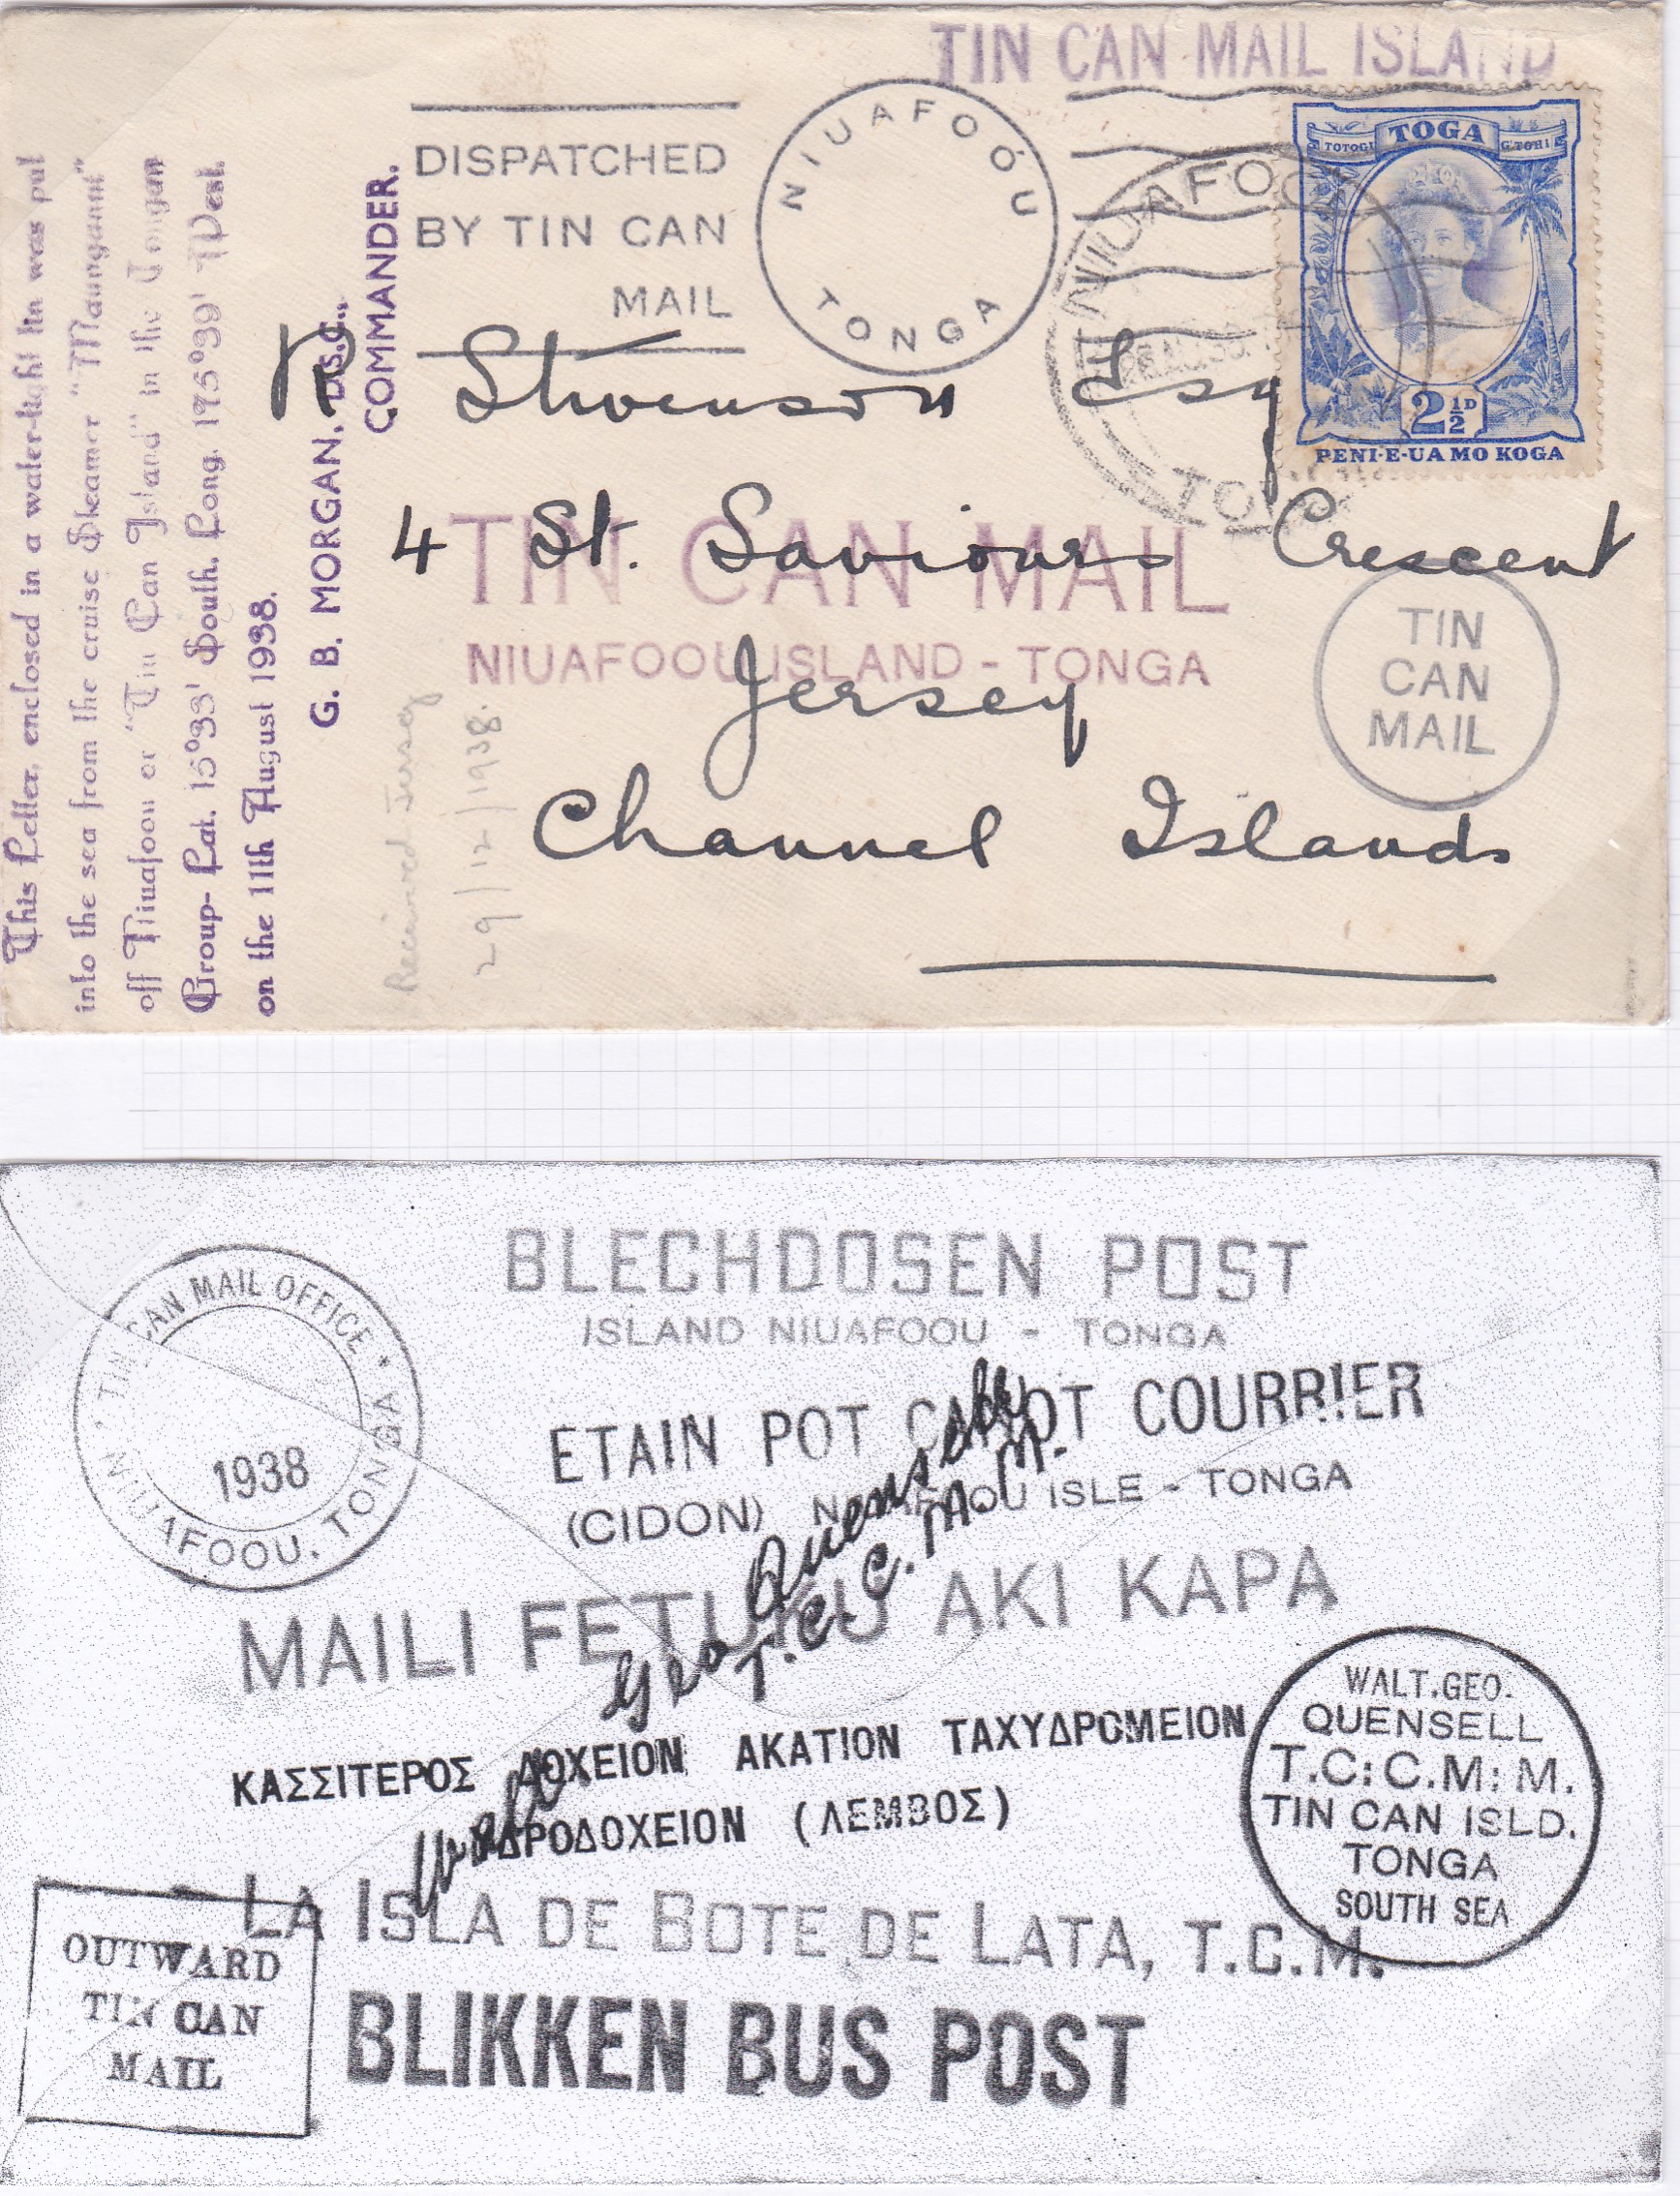 TIN CAN MAIL ISLAND
DISPATCHED
BY TIN CAN
MAIL
NIUAFOÓU
TONGA
NIUAFOOU
TOTOGI TOGA G'TOHI
2½D
PENI-E-UA MO KOGA
This Letter, enclosed in a water-tight tin was put
into the sea from the cruise Steamer "Maunganui"
off Niuafoou or "Tin Can Island" in the Tongan
Group- Lat. 15°33' South, Long. 175°39' West
on the 11th August 1938.
G. B. MORGAN, D.S.C.,
COMMANDER.
R. Stevenson Esq
4 St. Saviours Crescent
Jersey
Channel Islands
TIN CAN MAIL
NIUAFOOU ISLAND - TONGA
TIN
CAN
MAIL
Received Jersey
29/12/1938.
BLECHDOSEN POST
ISLAND NIUAFOOU - TONGA
TIN CAN MAIL OFFICE
1938
NIUAFOOU, TONGA
ETAIN POT CANOT COURRIER
(CIDON) NIUAFOOU ISLE - TONGA
MAILI FETUKU AKI KAPA
Walt Geo Quensell
T.C.C.M.M.
ΚΑΣΣΙΤΕΡΟΣ ΔΟΧΕΙΟΝ ΑΚΑΤΙΟΝ ΤΑΧΥΔΡΟΜΕΙΟΝ
ΥΔΡΟΔΟΧΕΙΟΝ (ΛΕΜΒΟΣ)
WALT.GEO.
QUENSELL
T.C:C.M:M.
TIN CAN ISLD.
TONGA
SOUTH SEA
LA ISLA DE BOTE DE LATA, T.C.M.
OUTWARD
TIN CAN
MAIL
BLIKKEN BUS POST